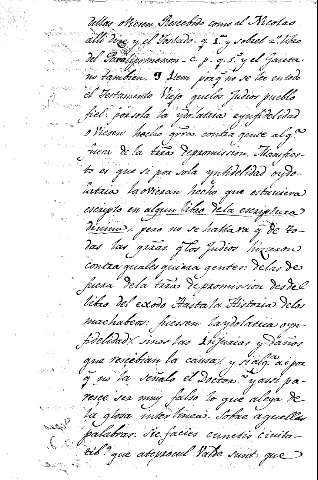 dellas oviesen Rescebido como el Nicolas
alli dize y el Tostado. q. 1ª y sobre el 2º libro
del Paralipomenon. c. p. q. 5. y el Gaeta
no tambien. Item porq̃ no se lee en todo
el Testamento Viejo quelos Judios pueblo
fiel. por sola la ydolatria e ynfidelidad
oviesen hecho grr̃a contra gente algª
fuera de la trr̃a depromission. Manifies
to es que si por sola ynfidelidad oydo
latria la ovieran hecho que estuviera
escripto en algun libro de la escriptura
divina, pero no se hallara q̃ de to
das las grr̃as q̃ los Judios hizieron
contra qualesquiera gentes delas de
fuera de la trr̃a depromission desdel
libro del exodo hasta la Historia delos
machabeos; fuesen la ydolatria oyn
fidelidad; sinos las Injurias y daños
que rescebian la causa; y si algª ai por
q̃ no la señalo el Doctor. y assi pa
resce ser muy falso lo que alega de
la glosa interlineal. Sobre aquellas
palabras. Sic facies cunctis civita
tibus que ateprocul Valde sunt. que